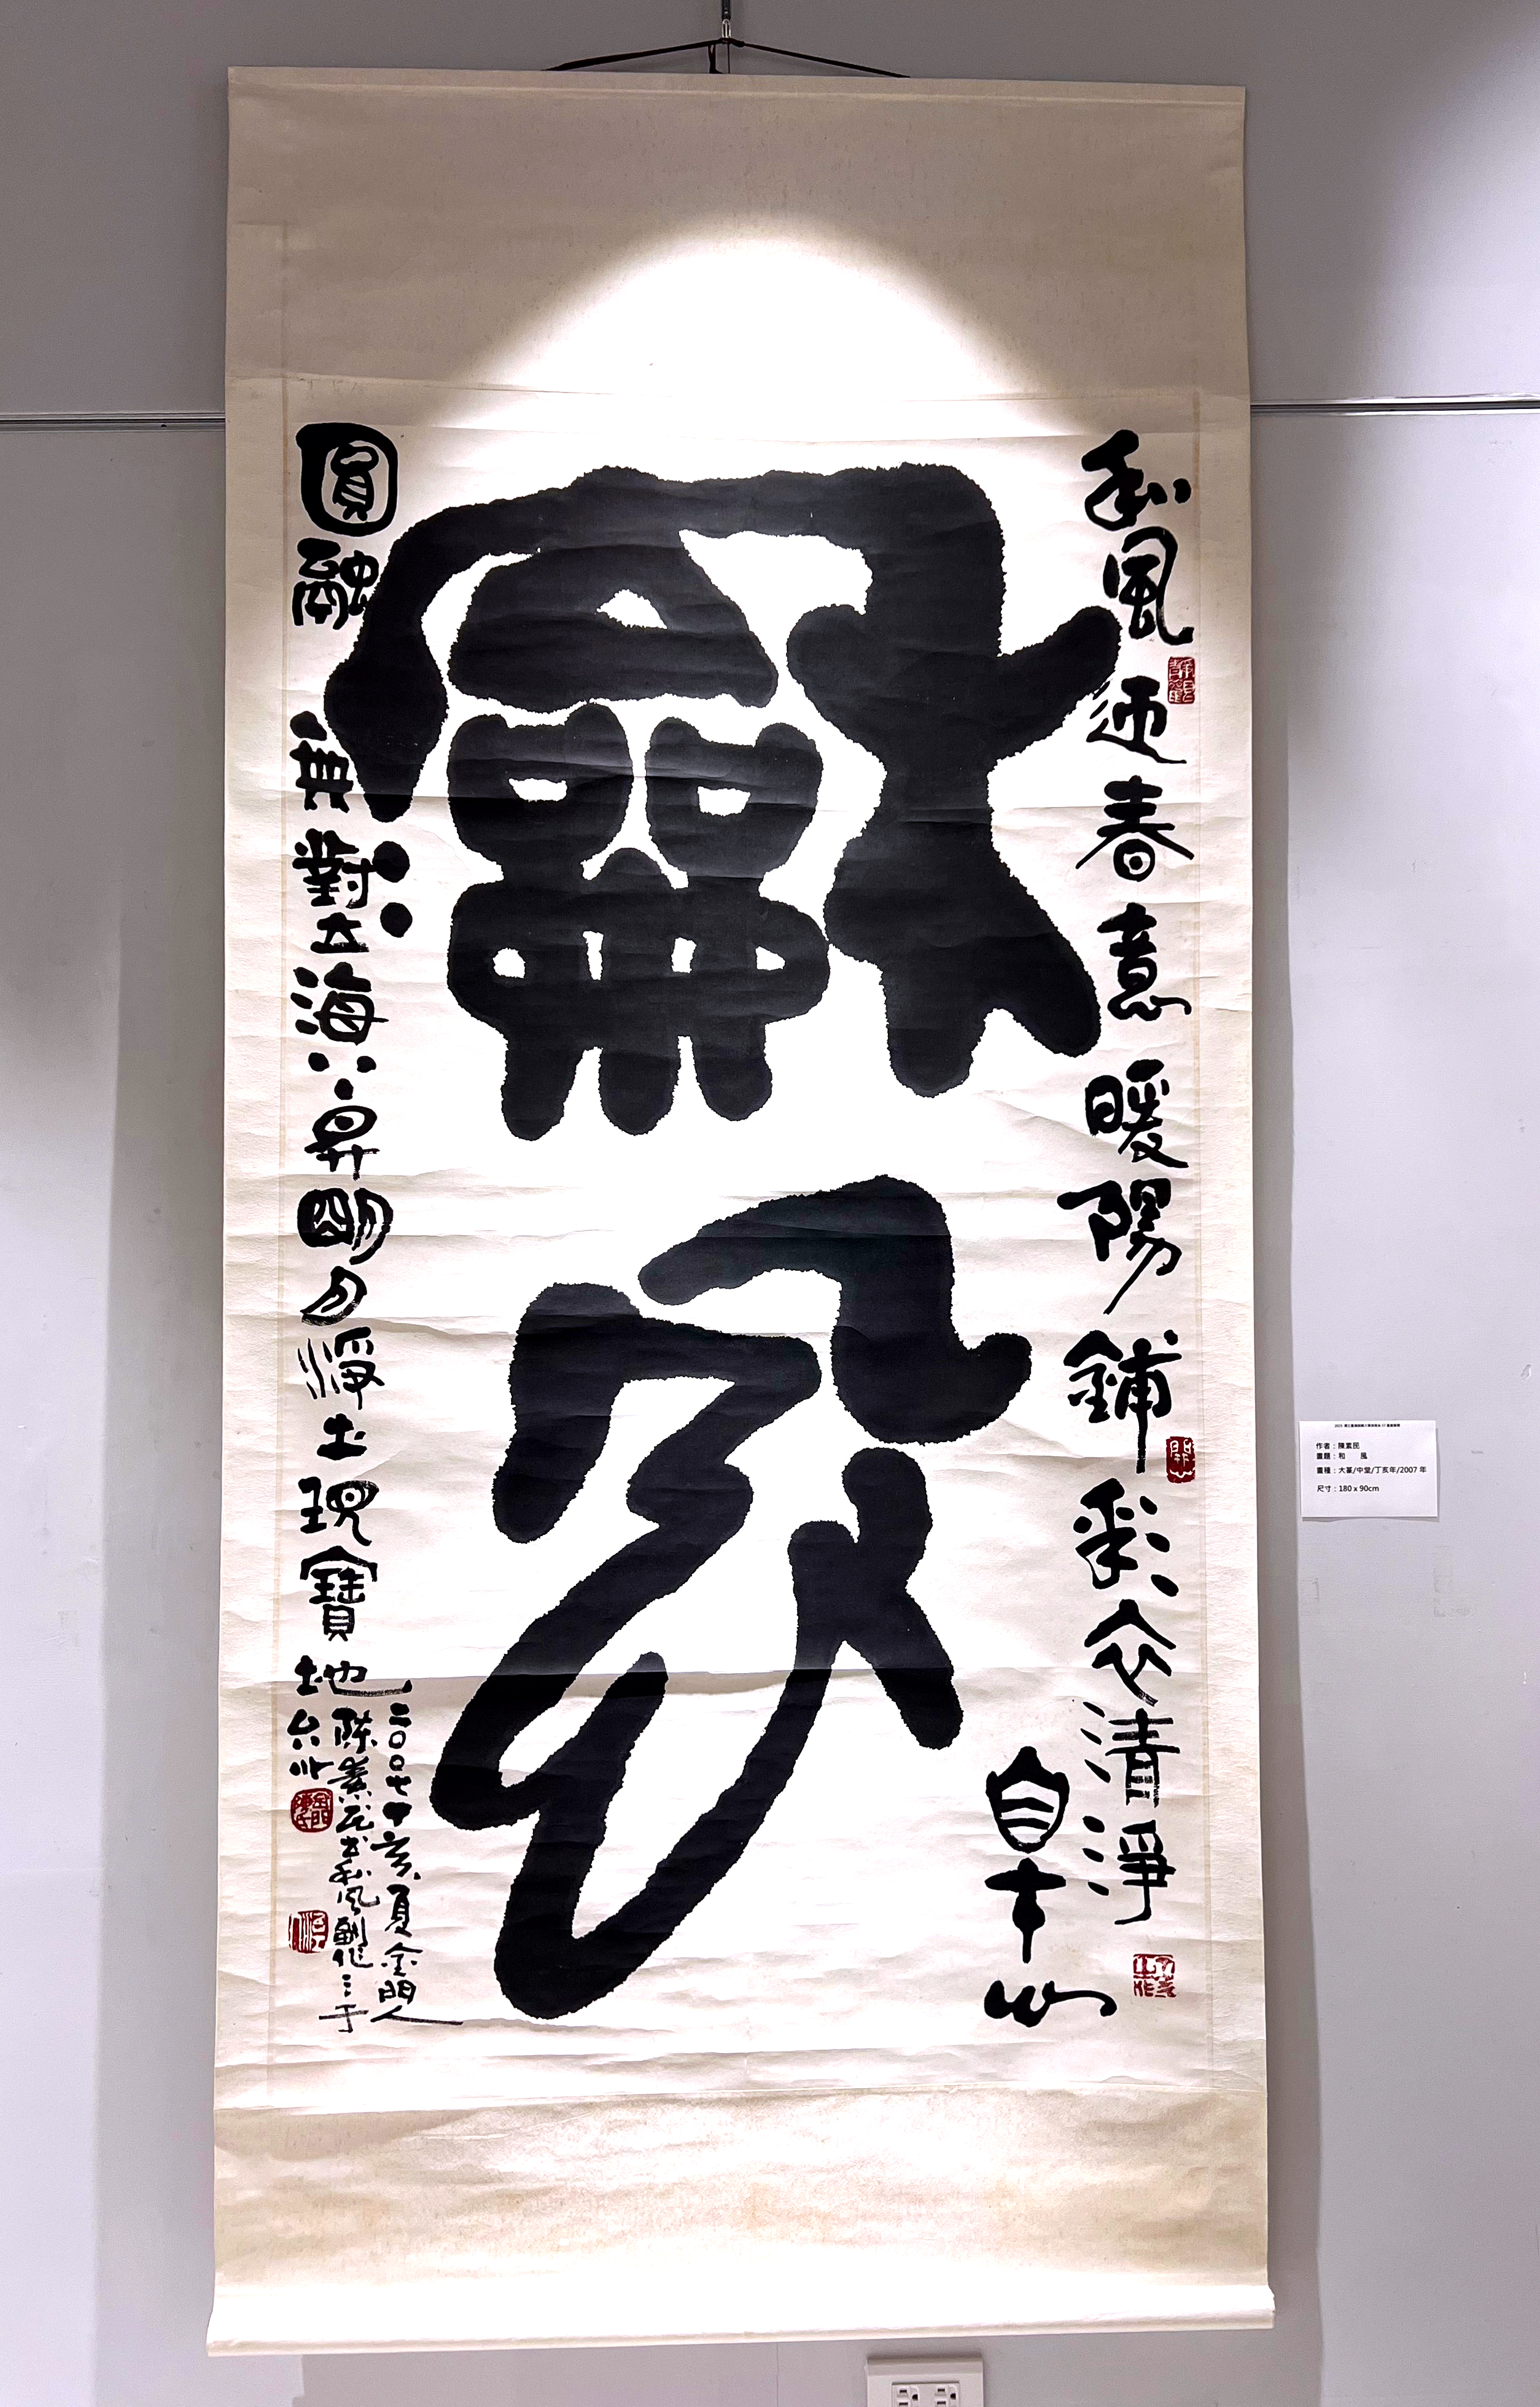 龢風
和風迎春意暖陽鋪彩衣清淨
自本心
圓融無對立海
昇明月淨土現寶地
二〇〇七丁亥夏金門人
陳素民書和風創作于
台北
作者：陳素民
畫題：和　風
畫種：大篆/中堂/丁亥年/2007 年
尺寸：180 x 90cm